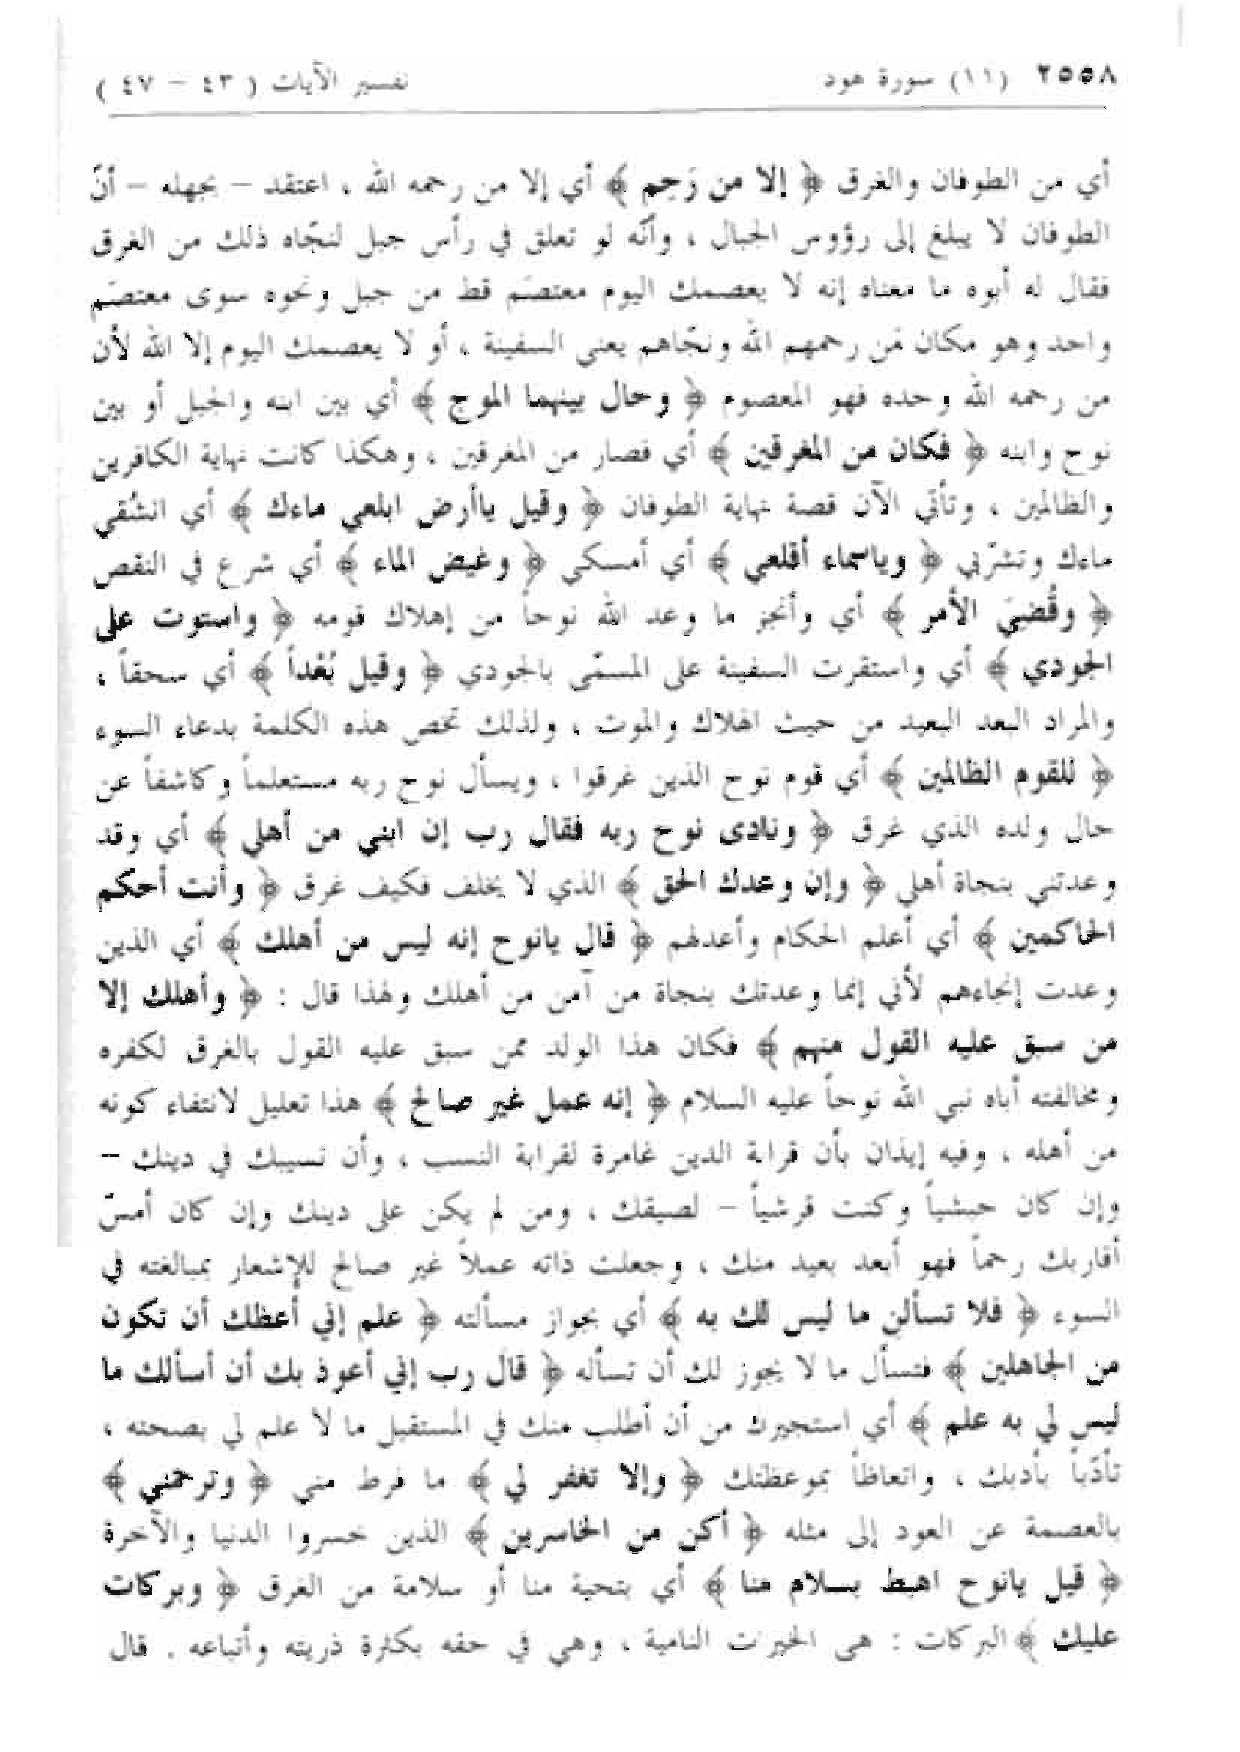 ٢٥٥٨ (١١) سورة هود تفسير الآيات ( ٤٣ – ٤٧ )
أي من الطوفان والغرق ﴿ إلا من رَحِم ﴾ أي إلا من رحمه الله ، اعتقد – بجهله – أنّ
الطوفان لا يبلغ إلى رؤوس الجبال ، وأنّه لو تعلق في رأس جبل لنجّاه ذلك من الغرق
فقال له أبوه ما معناه إنه لا يعصمك اليوم معتصَم قط من جبل ونحوه سوى معتصَم
واحد وهو مكان مَن رحمهم الله ونجّاهم يعني السفينة ، أو لا يعصمك اليوم إلا الله لأن
من رحمه الله وحده فهو المعصوم ﴿ وحال بينهما الموج ﴾ أي بين ابنه والجبل أو بين
نوح وابنه ﴿ فكان من المغرقين ﴾ أي فصار من المغرقين ، وهكذا كانت نهاية الكافرين
والظالمين ، وتأتي الآن قصة نهاية الطوفان ﴿ وقيل ياأرض ابلعي ماءك ﴾ أي انشُقي
ماءك وتشرّبي ﴿ وياسماء أقلعي ﴾ أي أمسكي ﴿ وغيض الماء ﴾ أي شرع في النقص
﴿ وقُضيَ الأمر ﴾ أي وأنجز ما وعد الله نوحاً من إهلاك قومه ﴿ واستوت على
الجودي ﴾ أي واستقرت السفينة على المسمّى بالجودي ﴿ وقيل بُعْداً ﴾ أي سحقاً ،
والمراد البعد البعيد من حيث الهلاك والموت ، ولذلك تخص هذه الكلمة بدعاء السوء
﴿ للقوم الظالمين ﴾ أي قوم نوح الذين غرقوا ، ويسأل نوح ربه مستعلماً وكاشفاً عن
حال ولده الذي غرق ﴿ ونادى نوح ربه فقال رب إن ابني من أهلي ﴾ أي وقد
وعدتني بنجاة أهلي ﴿ وإن وعدك الحق ﴾ الذي لا يخلف فكيف غرق ﴿ وأنت أحكم
الحاكمين ﴾ أي أعلم الحكام وأعدلهم ﴿ قال يانوح إنه ليس من أهلك ﴾ أي الذين
وعدت إنجاءهم لأني إنما وعدتك بنجاة من آمن من أهلك ولهذا قال : ﴿ وأهلك إلا
من سبق عليه القول منهم ﴾ فكان هذا الولد ممن سبق عليه القول بالغرق لكفره
ومخالفته أباه نبي الله نوحاً عليه السلام ﴿ إنه عمل غير صالح ﴾ هذا تعليل لانتفاء كونه
من أهله ، وفيه إيذان بأن قرابة الدين غامرة لقرابة النسب ، وأن نسيبك في دينك –
وإن كان حبشياً وكنت قرشياً – لصيقك ، ومن لم يكن على دينك وإن كان أمسّ
أقاربك رحماً فهو أبعد بعيد منك ، وجعلت ذاته عملاً غير صالح للإشعار بمبالغته في
السوء ﴿ فلا تسألن ما ليس لك به ﴾ أي بجواز مسألته ﴿ علم إني أعظك أن تكون
من الجاهلين ﴾ فتسأل ما لا يجوز لك أن تسأله ﴿ قال رب إني أعوذ بك أن أسألك ما
ليس لي به علم ﴾ أي استجيرك من أن أطلب منك في المستقبل ما لا علم لي بصحته ،
تأدّباً بأدبك ، واتعاظاً بموعظتك ﴿ وإلا تغفر لي ﴾ ما فرط مني ﴿ وترحمني ﴾
بالعصمة عن العود إلى مثله ﴿ أكن من الخاسرين ﴾ الذين خسروا الدنيا والآخرة
﴿ قيل يانوح اهبط بسلام منا ﴾ أي بتحية منا أو سلامة من الغرق ﴿ وبركات
عليك ﴾ البركات : هي الخيرات النامية ، وهي في حقه بكثرة ذريته وأتباعه . قال